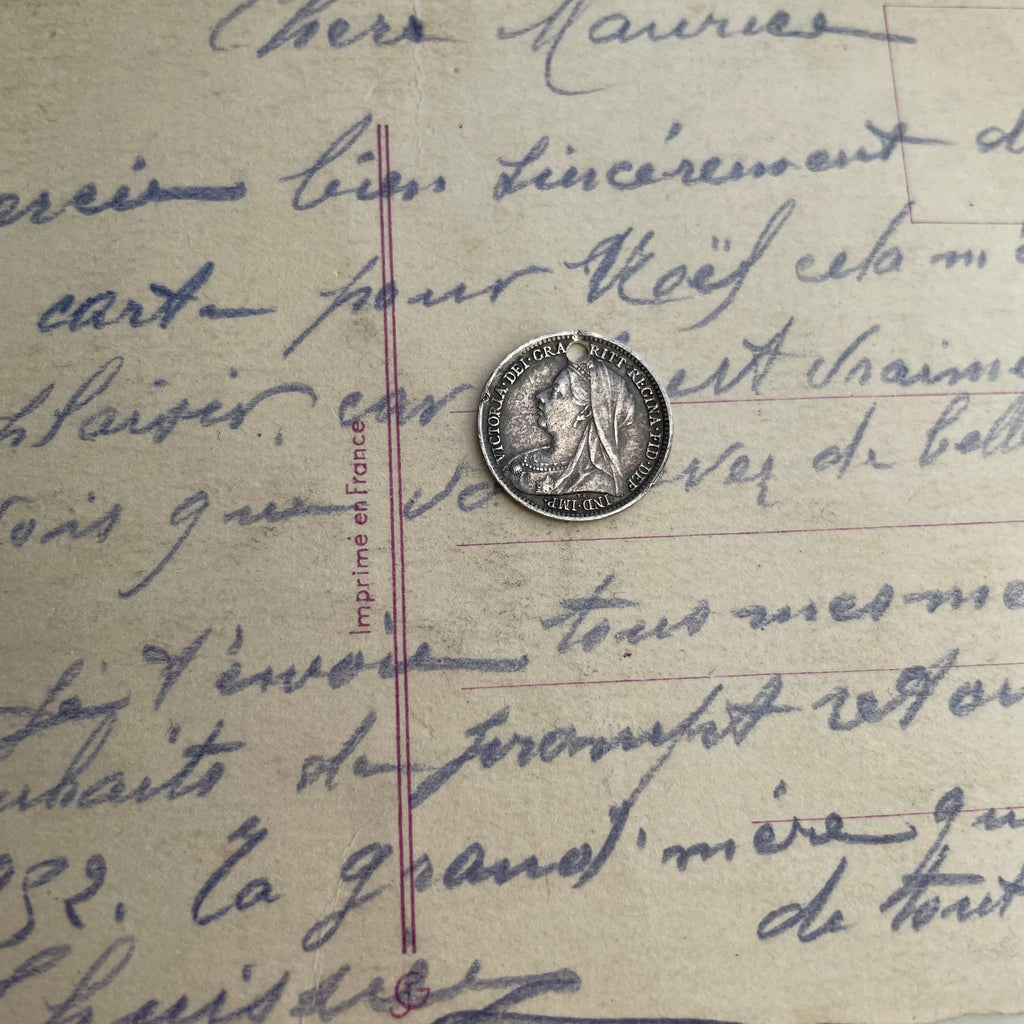 Chere Maurice
bien sincèrement
carte pour Noël cela m'
plaisir, car est vraime
que de bell
Je t'envoie tous mes me
de prompt retou
952. Ta grand'mère qu
de tout
Imprimé en France
VICTORIA·DEI·GRA BRITT·REGINA·FID·DEF·IND·IMP·